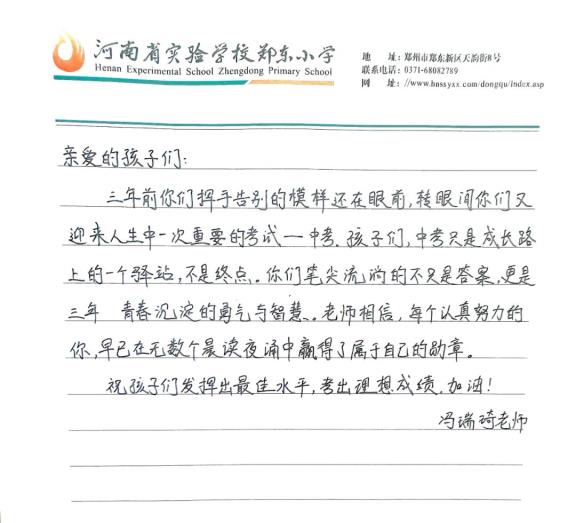 河南省实验学校郑东小学
Henan Experimental School Zhengdong Primary School
地 址：郑州市郑东新区天韵街8号
联系电话：0371-68082789
网 址：//www.hnssyxx.com/dongqu/index.asp
亲爱的孩子们：
三年前你们挥手告别的模样还在眼前，转眼间你们又
迎来人生中一次重要的考试一中考。孩子们，中考只是成长路
上的一个驿站，不是终点。你们笔尖流淌的不只是答案，更是
三年 青春沉淀的勇气与智慧。老师相信，每个认真努力的
你，早已在无数个晨读夜诵中赢得了属于自己的勋章。
祝孩子们发挥出最佳水平，考出理想成绩，加油！
冯瑞琦老师